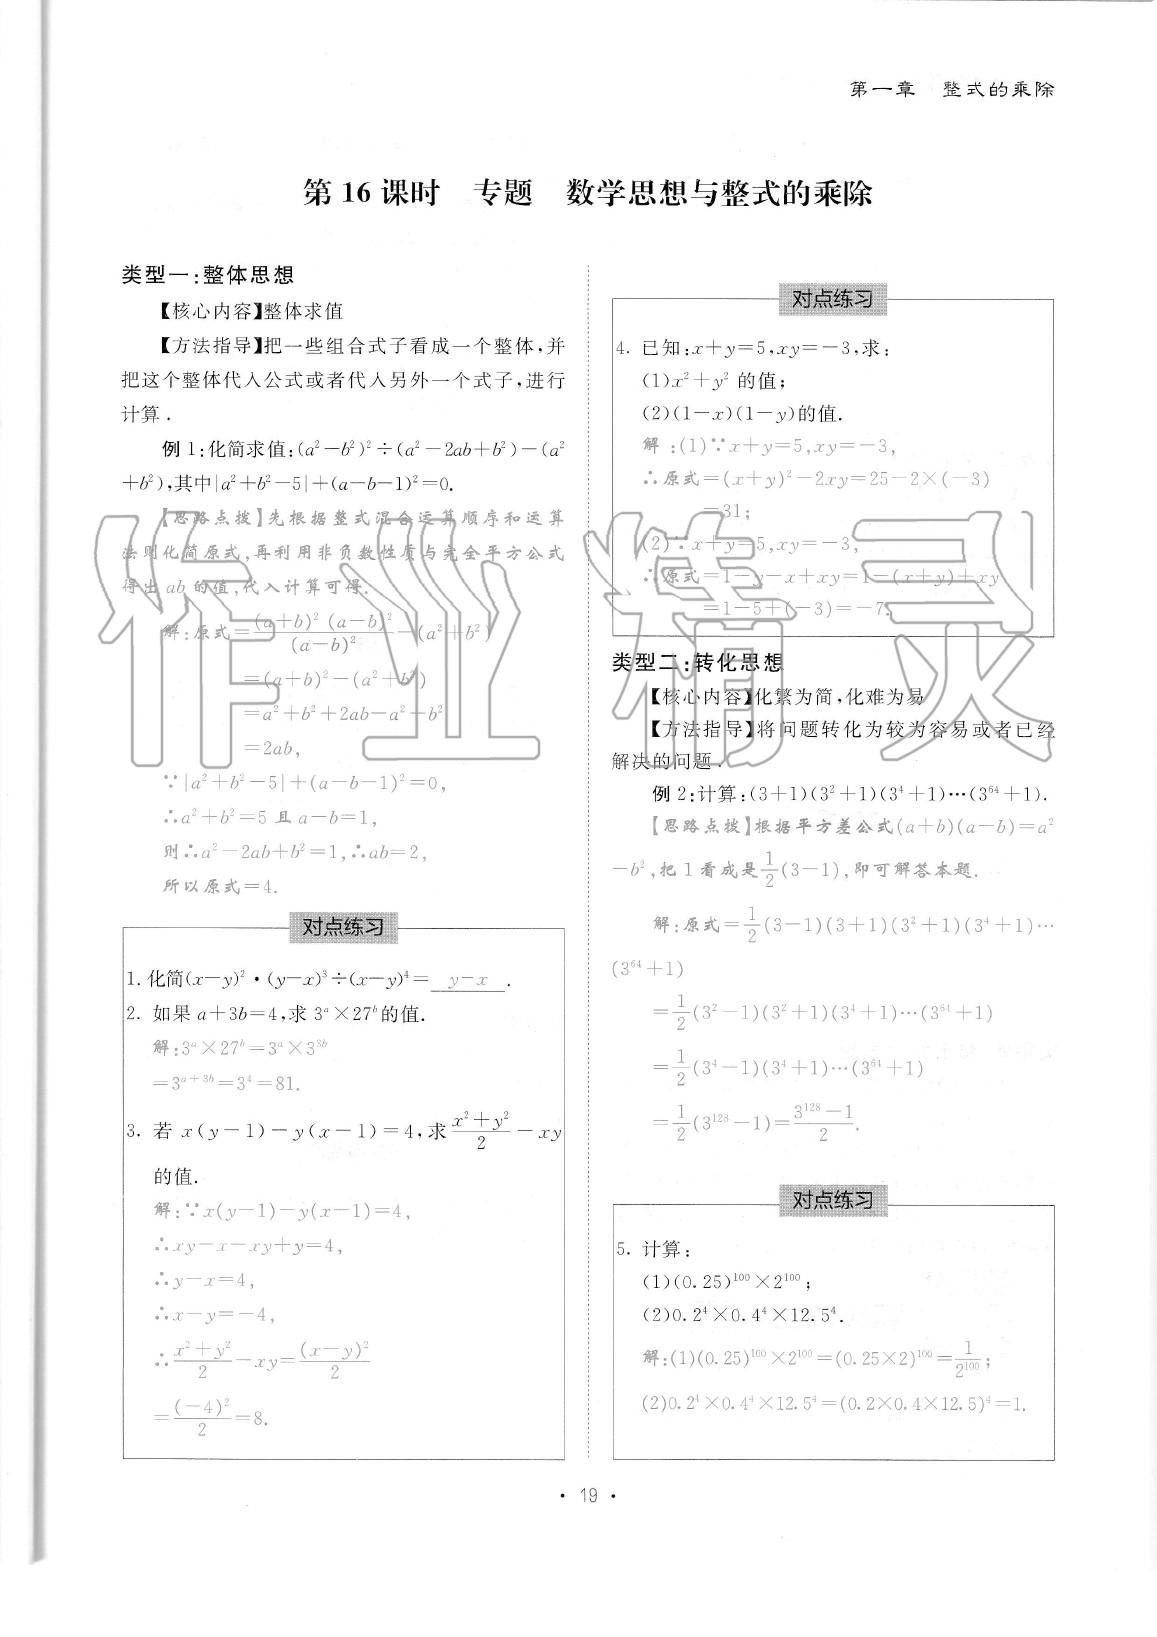 第一章　整式的乘除
第 16 课时　专题　数学思想与整式的乘除
类型一：整体思想
【核心内容】整体求值
【方法指导】把一些组合式子看成一个整体，并
把这个整体代入公式或者代入另外一个式子，进行
计算．
例 1：化简求值：(a²－b²)²÷(a²－2ab＋b²)－(a²
＋b²)，其中|a²＋b²－5|＋(a－b－1)²＝0.
【思路点拨】先根据整式混合运算顺序和运算
法则化简原式，再利用非负数性质与完全平方公式
得出 ab 的值，代入计算可得．
解：原式＝(a＋b)² (a－b)²/(a－b)²－(a²＋b²)
＝(a＋b)²－(a²＋b²)
＝a²＋b²＋2ab－a²－b²
＝2ab，
∵|a²＋b²－5|＋(a－b－1)²＝0，
∴a²＋b²＝5 且 a－b＝1，
则∴a²－2ab＋b²＝1，∴ab＝2，
所以原式＝4.
对点练习
1. 化简(x－y)²·(y－x)³÷(x－y)⁴＝ y－x .
2. 如果 a＋3b＝4，求 3ᵃ×27ᵇ的值．
解：3ᵃ×27ᵇ＝3ᵃ×3³ᵇ
＝3ᵃ⁺³ᵇ＝3⁴＝81.
3. 若 x(y－1)－y(x－1)＝4，求(x²＋y²)/2－xy
的值．
解：∵x(y－1)－y(x－1)＝4，
∴xy－x－xy＋y＝4，
∴y－x＝4，
∴x－y＝－4，
∴(x²＋y²)/2－xy＝(x－y)²/2
＝(－4)²/2＝8.
对点练习
4. 已知：x＋y＝5，xy＝－3，求：
(1)x²＋y² 的值；
(2)(1－x)(1－y)的值．
解：(1)∵x＋y＝5，xy＝－3，
∴原式＝(x＋y)²－2xy＝25－2×(－3)
＝31；
(2)∵x＋y＝5，xy＝－3，
∴原式＝1－y－x＋xy＝1－(x＋y)＋xy
＝1－5＋(－3)＝－7.
类型二：转化思想
【核心内容】化繁为简，化难为易
【方法指导】将问题转化为较为容易或者已经
解决的问题．
例 2：计算：(3＋1)(3²＋1)(3⁴＋1)…(3⁶⁴＋1).
【思路点拨】根据平方差公式(a＋b)(a－b)＝a²
－b²，把 1 看成是1/2(3－1)，即可解答本题．
解：原式＝1/2(3－1)(3＋1)(3²＋1)(3⁴＋1)…
(3⁶⁴＋1)
＝1/2(3²－1)(3²＋1)(3⁴＋1)…(3⁶⁴＋1)
＝1/2(3⁴－1)(3⁴＋1)…(3⁶⁴＋1)
＝1/2(3¹²⁸－1)＝(3¹²⁸－1)/2.
对点练习
5. 计算：
(1)(0.25)¹⁰⁰×2¹⁰⁰；
(2)0.2⁴×0.4⁴×12.5⁴.
解：(1)(0.25)¹⁰⁰×2¹⁰⁰＝(0.25×2)¹⁰⁰＝1/2¹⁰⁰；
(2)0.2⁴×0.4⁴×12.5⁴＝(0.2×0.4×12.5)⁴＝1.
· 19 ·
作业精灵